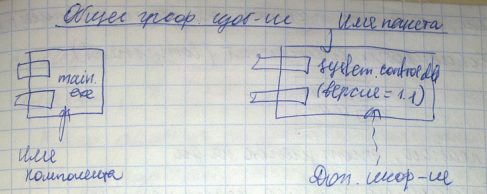 Общее граф. изоб-ие
Имя пакета
main.
exe
system.control.dll
(версия = 1.1)
Имя
компонента
Доп. инфор-ие